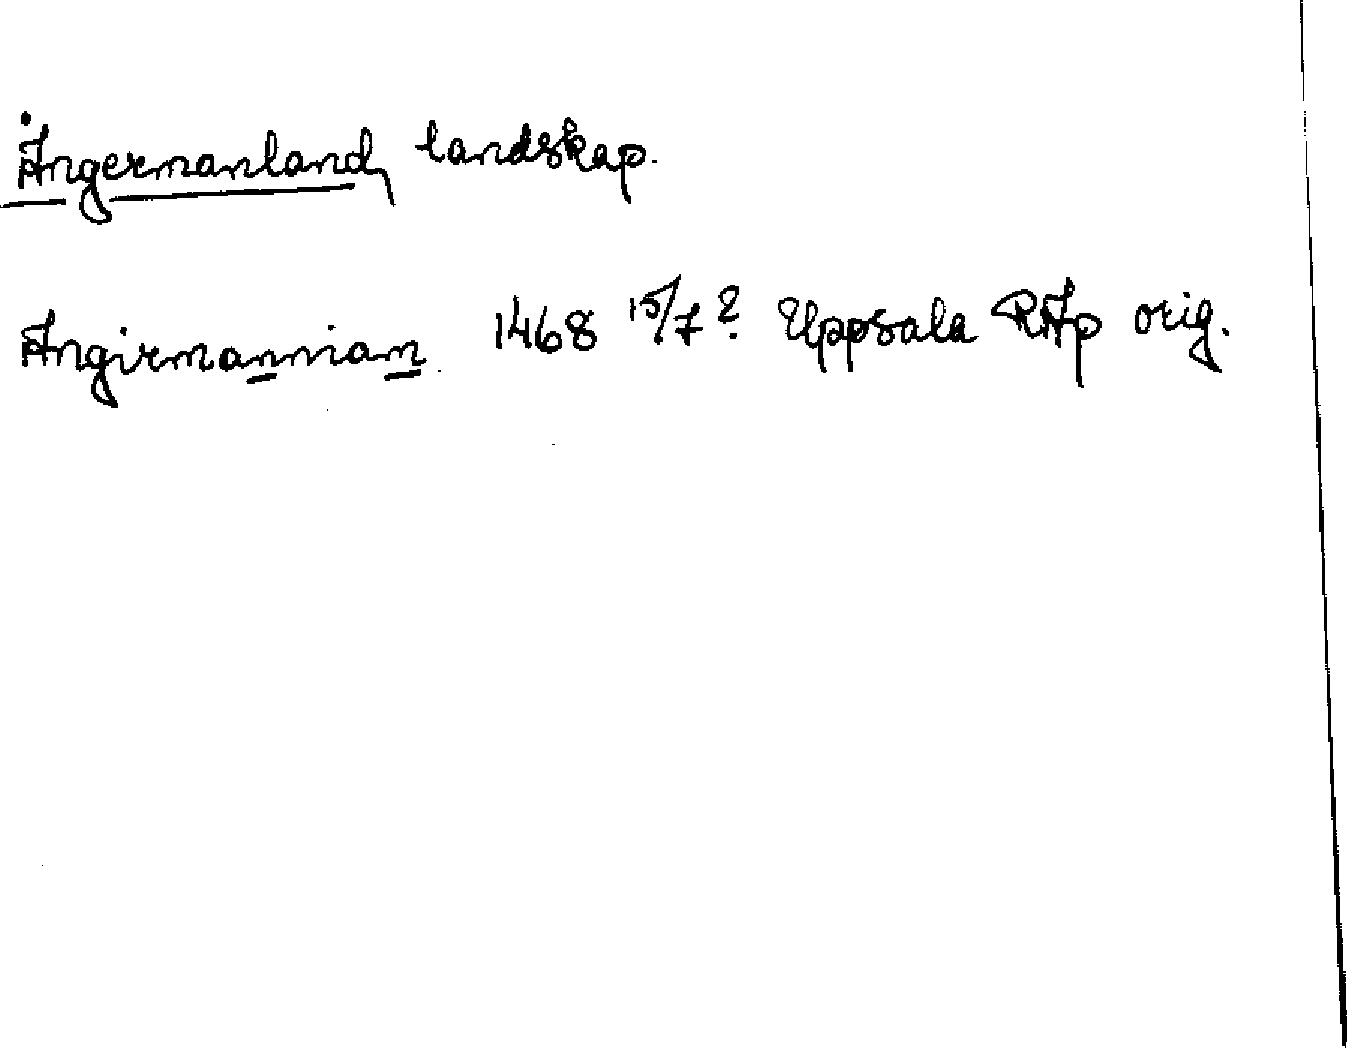 Ångermanland, landskap.
Angirmanniam 1468 15/7? Uppsala RAp orig.